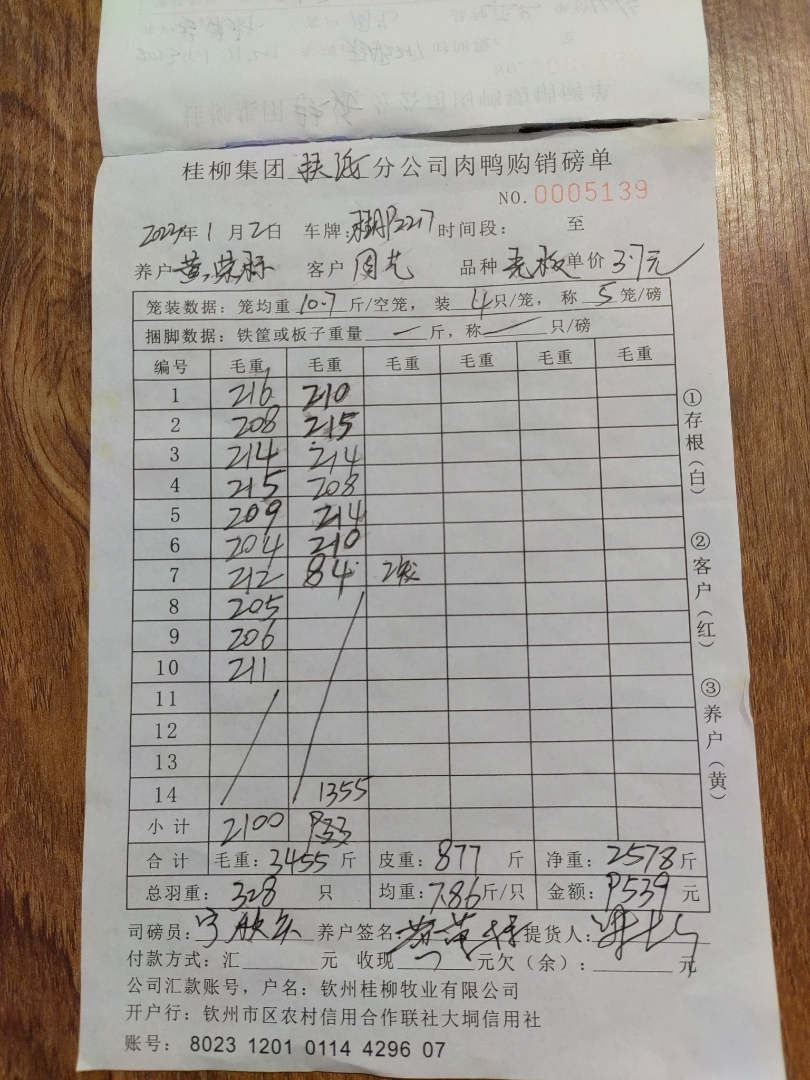 桂柳集团 扶 分公司肉鸭购销磅单
NO. 0005139
年1月2日 车牌: 时间段: 至
养户 黄 客户 周 品种 老板 单价 3.7元
笼装数据: 笼均重 10.7 斤/空笼, 装 4 只/笼, 称 5 笼/磅
捆脚数据: 铁筐或板子重量 一 斤, 称 一 只/磅
编号 毛重 毛重 毛重 毛重 毛重 毛重
1 216 210
2 208 215
3 214 214
4 215 208
5 209 214
6 204 210
7 212 84
8 205
9 206
10 211
11
12
13
14 1355
小计 2100
合计 毛重: 3455 斤 皮重: 877 斤 净重: 2578 斤
总羽重: 328 只 均重: 7.86 斤/只 金额: 9539 元
司磅员: 养户签名: 提货人:
付款方式: 汇 元 收现 元欠(余): 元
公司汇款账号, 户名: 钦州桂柳牧业有限公司
开户行: 钦州市区农村信用合作联社大垌信用社
账号: 8023 1201 0114 4296 07
①存根(白)
②客户(红)
③养户(黄)